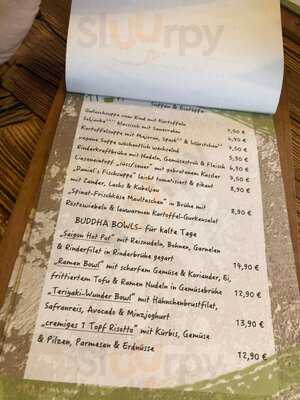 Sluurpy
Suppen & Eintöpfe
Gulaschsuppe vom Rind mit Kartoffeln
Soljanka klassisch mit Sauerrahm 7,90 €
Kartoffelsuppe mit Majoran, Speck & Würstchen
vegane Suppe wöchentlich wechselnd
Rinderkraftbrühe mit Nudeln, Gemüsestroh & Fleisch 6,90 €
Linseneintopf „süss/sauer" mit gebratenem Kassler
„Daniel's Fischsuppe" leicht tomatisiert & pikant 7,90 €
mit Zander, Lachs & Kabeljau 8,90 €
„Spinat-Frischkäse Maultaschen" in Brühe mit
Röstzwiebeln & lauwarmen Kartoffel-Gurkensalat
BUDDHA BOWLS- für kalte Tage
„Saigon Hot Pot" mit Reisnudeln, Bohnen, Garnelen
& Rinderfilet in Rinderbrühe gegart 14,90 €
„Ramen Bowl" mit scharfem Gemüse & Koriander, Ei,
frittiertem Tofu & Ramen Nudeln in Gemüsebrühe 12,90 €
„Teriyaki-Wunder Bowl" mit Hähnchenbrustfilet,
Safranreis, Avocado & Minzjoghurt 13,90 €
„cremiges 1 Topf Risotto" mit Kürbis, Gemüse
& Pilzen, Parmesan & Erdnüsse 12,90 €
Sluurpy